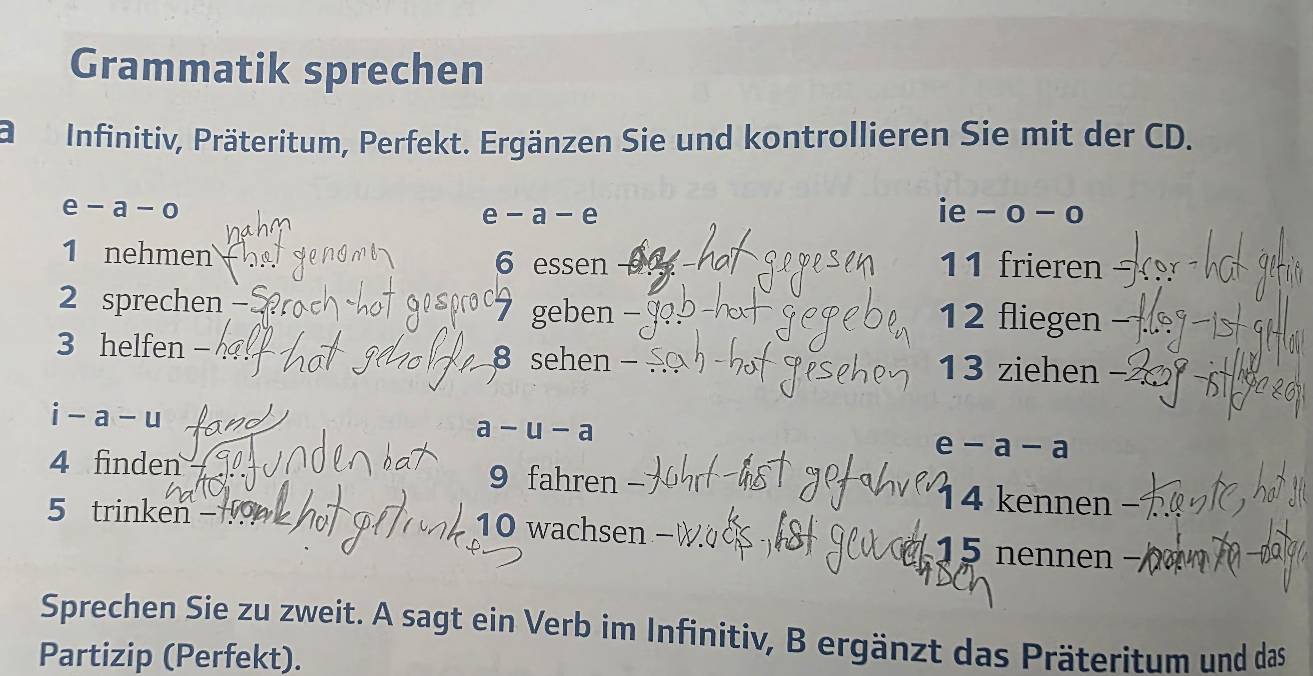 Grammatik sprechen
a Infinitiv, Präteritum, Perfekt. Ergänzen Sie und kontrollieren Sie mit der CD.
e – a – o
nahm
1 nehmen – hat genomen
2 sprechen – Sprach - hat gesproch
3 helfen – half hat geholfen
i – a – u
fand
4 finden – gefunden hat
5 trinken – trank hat getrunken
e – a – e
6 essen – - hat gegesen
7 geben – gab - hat gegeben
8 sehen – sah - hat gesehen
a – u – a
9 fahren – - ist gefahren
10 wachsen – , ist
ie – o – o
11 frieren – fror - hat
12 fliegen – flog - ist
13 ziehen – zog - ist
e – a – a
14 kennen – , hat
15 nennen –
Sprechen Sie zu zweit. A sagt ein Verb im Infinitiv, B ergänzt das Präteritum und das
Partizip (Perfekt).